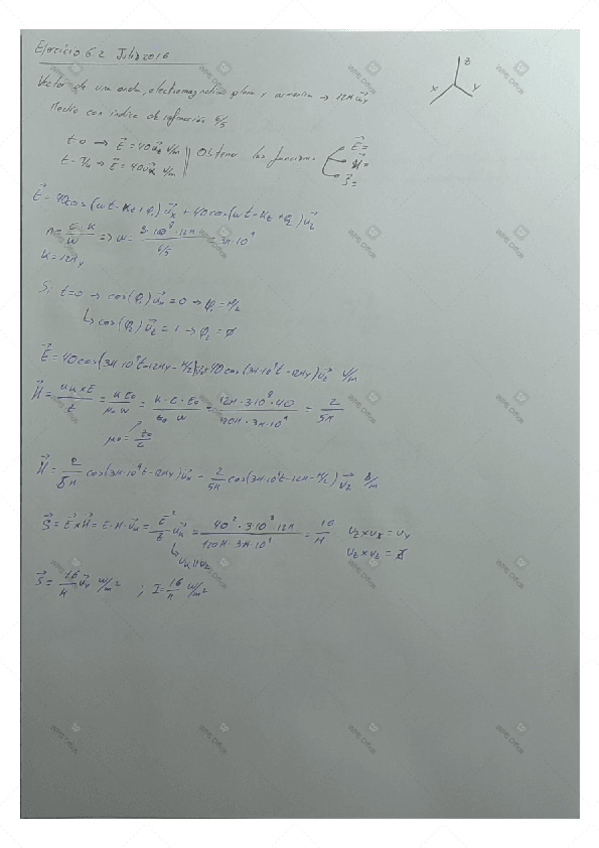 Ejercicio 6.2 Julio 2016
Vector de una onda, electromagnética plana y armónica → 12π u⃗y
Medio con índice de refracción 6/5
t=0 → E⃗ = 40u⃗z V/m
E⃗ = 40u⃗x V/m
Obtener las funciones
E⃗=
H⃗=
S⃗=
X Y Z
E⃗ = 40cos(wt - Ky + φ1) u⃗x + 40cos(wt - Ky + φ2) u⃗z
n = c·K/w => w = 3·10^8·12π / 6/5 = 3π·10^9
K = 12π
Si t=0 → cos(φ1) u⃗x = 0 → φ1 = π/2
↳ cos(φ2) u⃗z = 1 → φ2 = 0
E⃗ = 40cos(3π·10^9t - 12πy - π/2) 40cos(3π·10^9t - 12πy) u⃗z V/m
H⃗ = uK×E / Z = K·E0 / μ0 w = K·C·E0 / Z0 w = 12π·3·10^8·40 / 120π·3π·10^9 = 2/5π
μ0 = Z0/C
H⃗ = 2/5π cos(3π·10^9t - 12πy) u⃗x - 2/5π cos(3π·10^9t - 12π - π/2) u⃗z A/m
S⃗ = E⃗×H⃗ = E·H·u⃗K = E²/Z u⃗K = 40²·3·10^8·12π / 120π·3π·10^9 = 16/π
uZ×uX = uY
uZ×uZ = 0
S⃗ = 16/π u⃗y W/m² ; I = 16/π W/m²
WPS Office